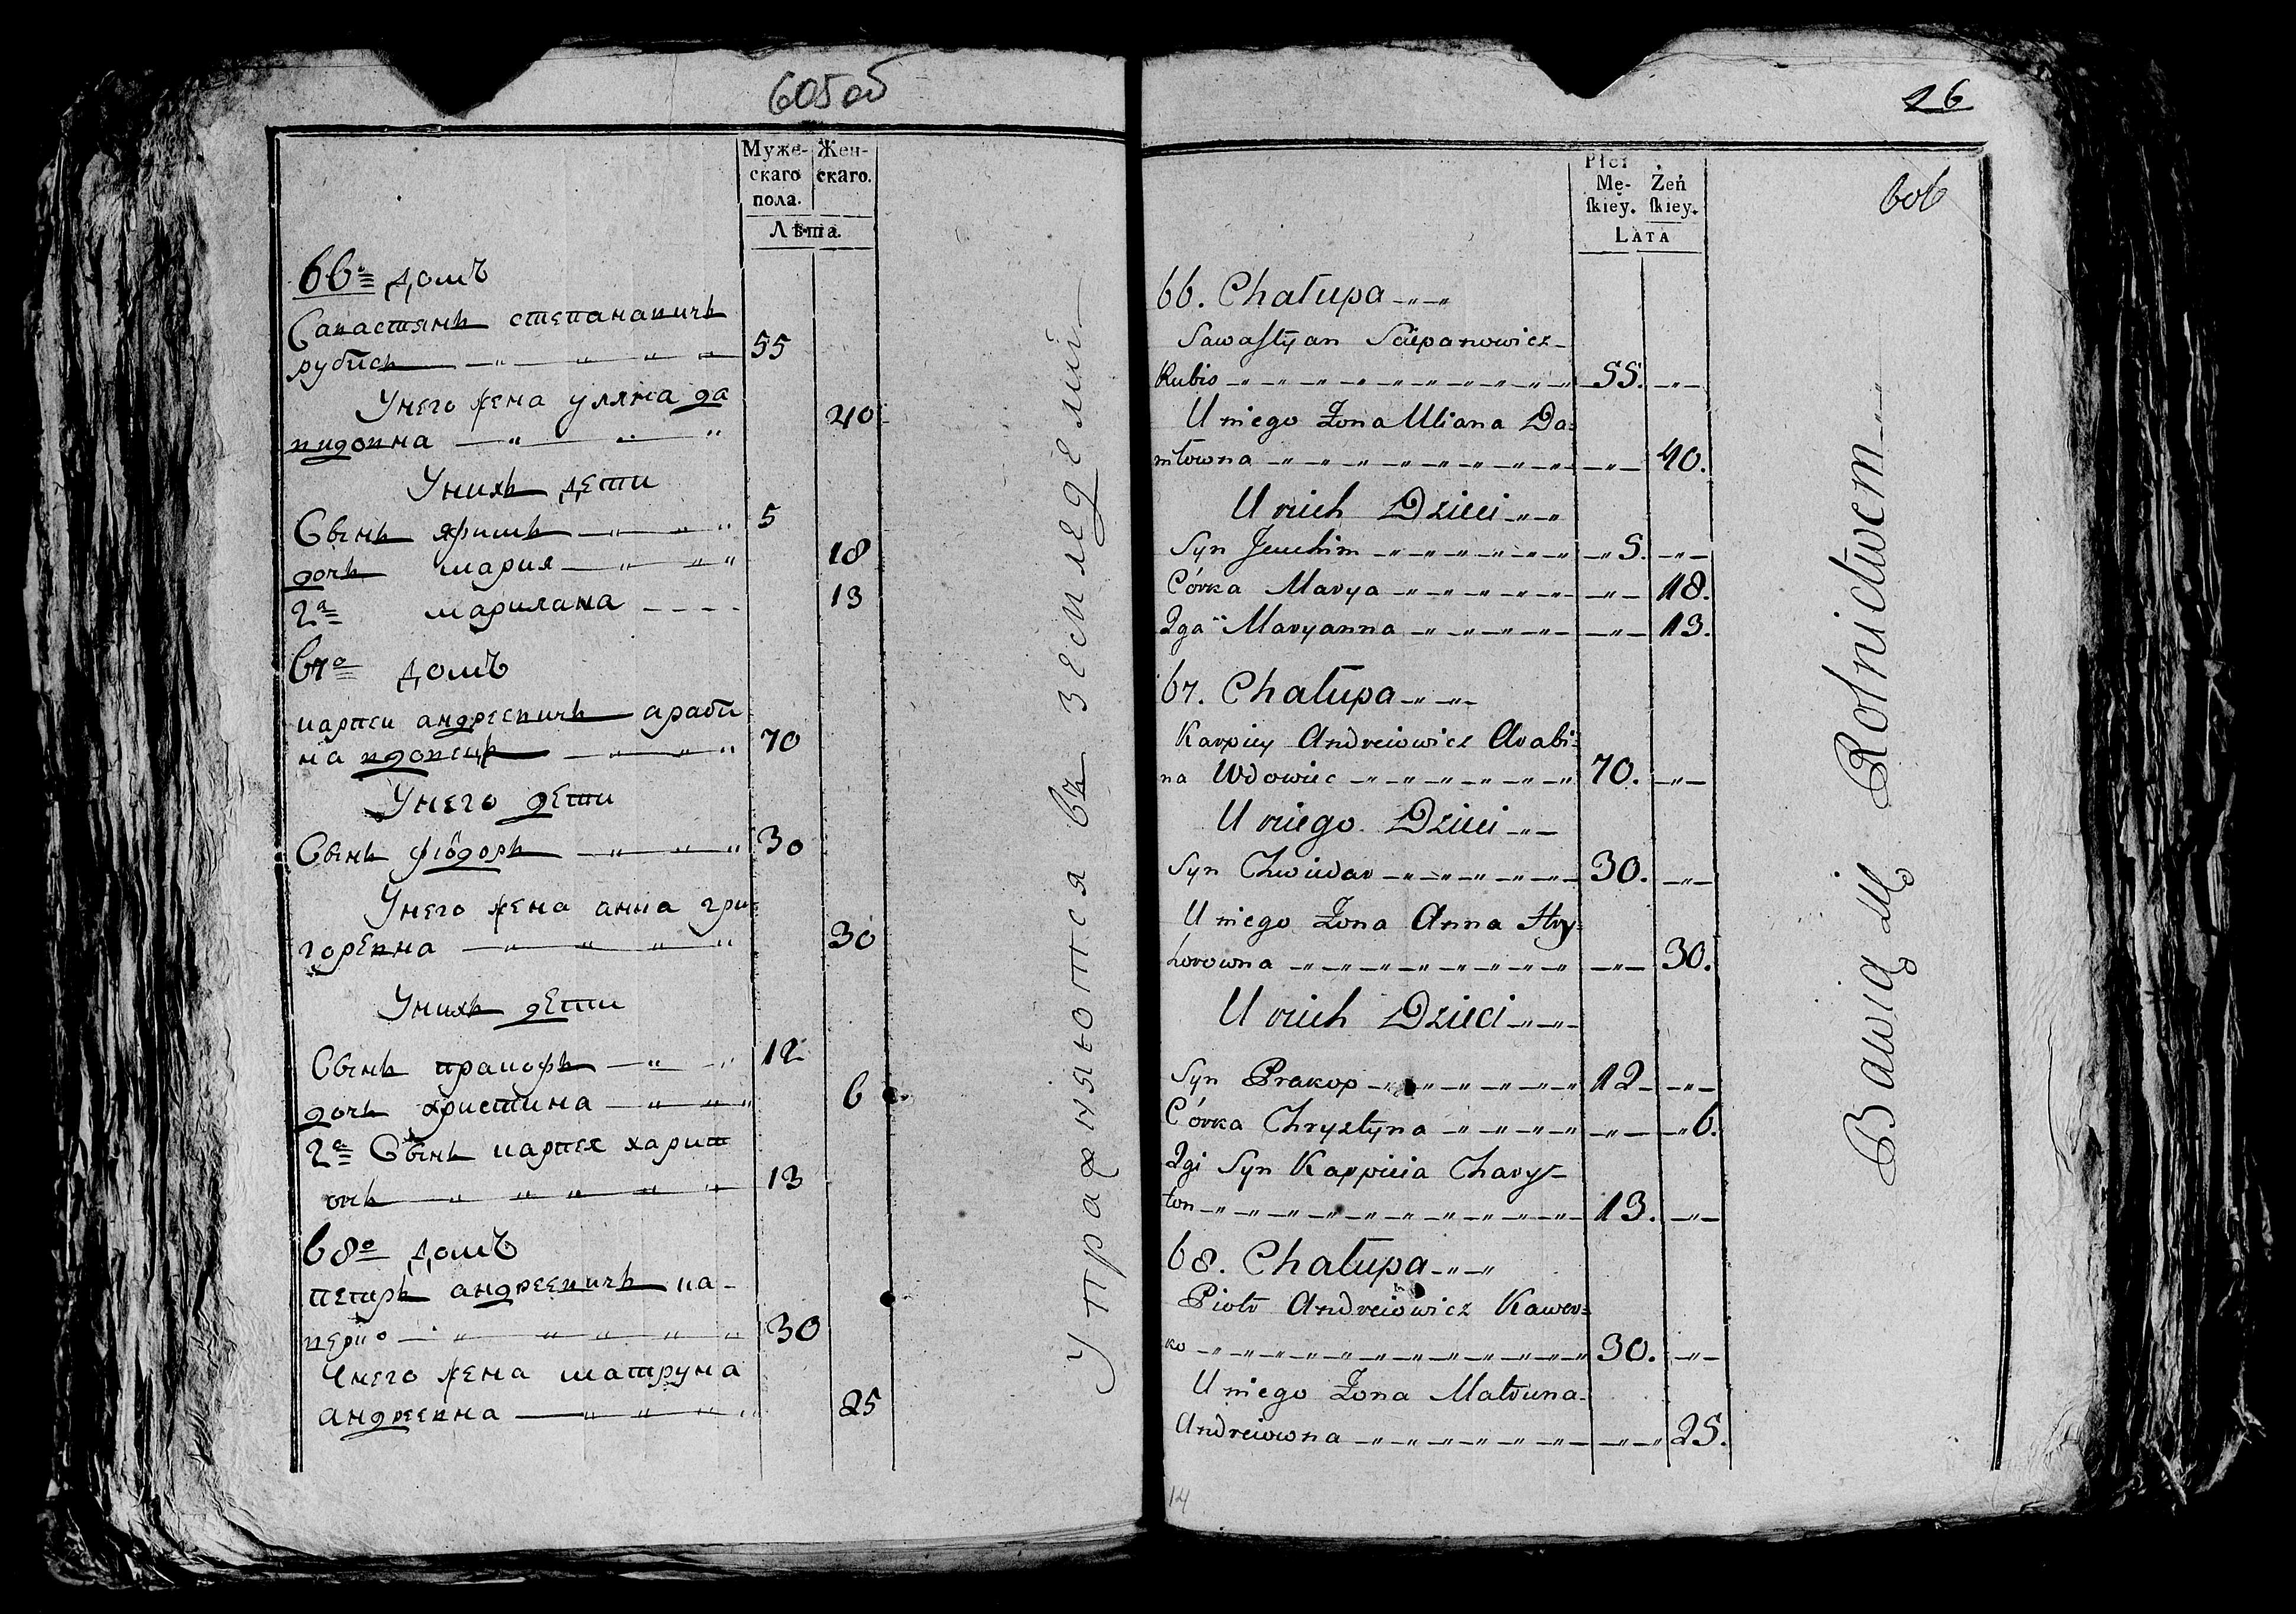 605 об
Муже-
скаго
пола.
Жен-
скаго.
Лѣта.
66е домъ
Савастянъ степановичъ
рубисъ 55
Унего жена уляна да
нидовна 40
Унихъ дети
Сынъ яфимъ 5
дочъ мария 18
2я марияна 13
67о домъ
карпеи андреевичъ араби
на вдовецъ 70
Унего дети
Сынъ фіодоръ 30
Унего жена анна гри
горевна 30
Унихъ дети
Сынъ пракофъ 12
дочъ христина 6
2й Сынъ карпея харит
онъ 13
68о домъ
петръ андреевичъ ка-
верко 30
Унего жена матруна
андреевна 25
Упражняются въ земледелии
26
606
Płci
Mę-
ſkiey.
Żeń
ſkiey.
LATA
66. Chałupa
Sawaſtyan Sciepanowicz
Rubis 55.
U niego Żona Uliana Da=
niłowna 40.
U nich Dzieci
Syn Jeuchim 5.
Córka Marya 18.
2ga Maryanna 13.
67. Chałupa
Karpiey Andreiowicz Arabi=
na Wdowiec 70.
U niego Dzieci
Syn Chwiedar 30.
U niego Żona Anna Hry=
horowna 30.
U nich Dzieci
Syn Prakop 12
Córka Chrystyna 6.
2gi Syn Karpieia Charys-
ton 13.
68. Chałupa
Piotr Andreiowicz Kawer=
ko 30.
U niego Żona Matruna
Andreiowna 25.
Bawią się Rolnictwem
14